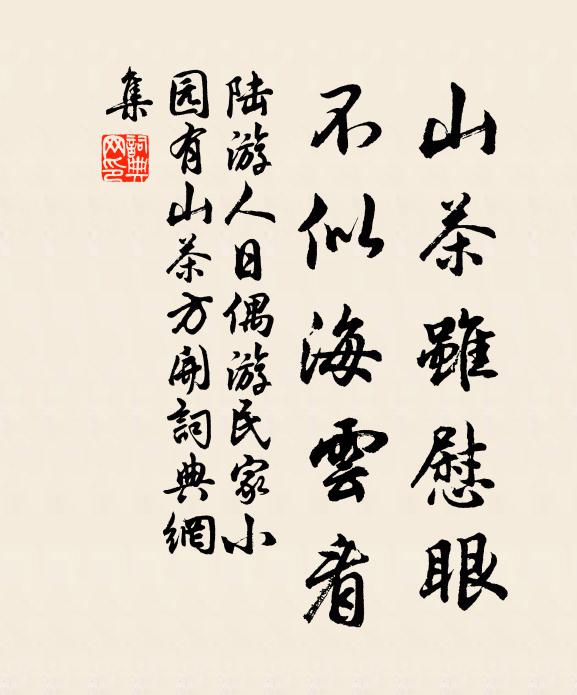 山茶雖慰眼
不似海雲看
陆游人日偶游民家小
园有山茶方開詞典網
集
詞典
网印